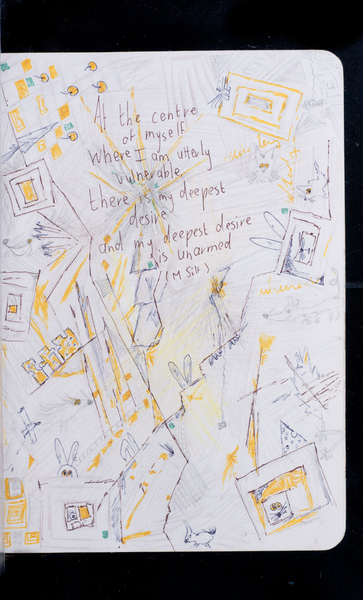 At the centre
of myself
Where I am utterly
vunerable
there is my deepest
desire
and my deepest desire
is unarmed
(M Sill)